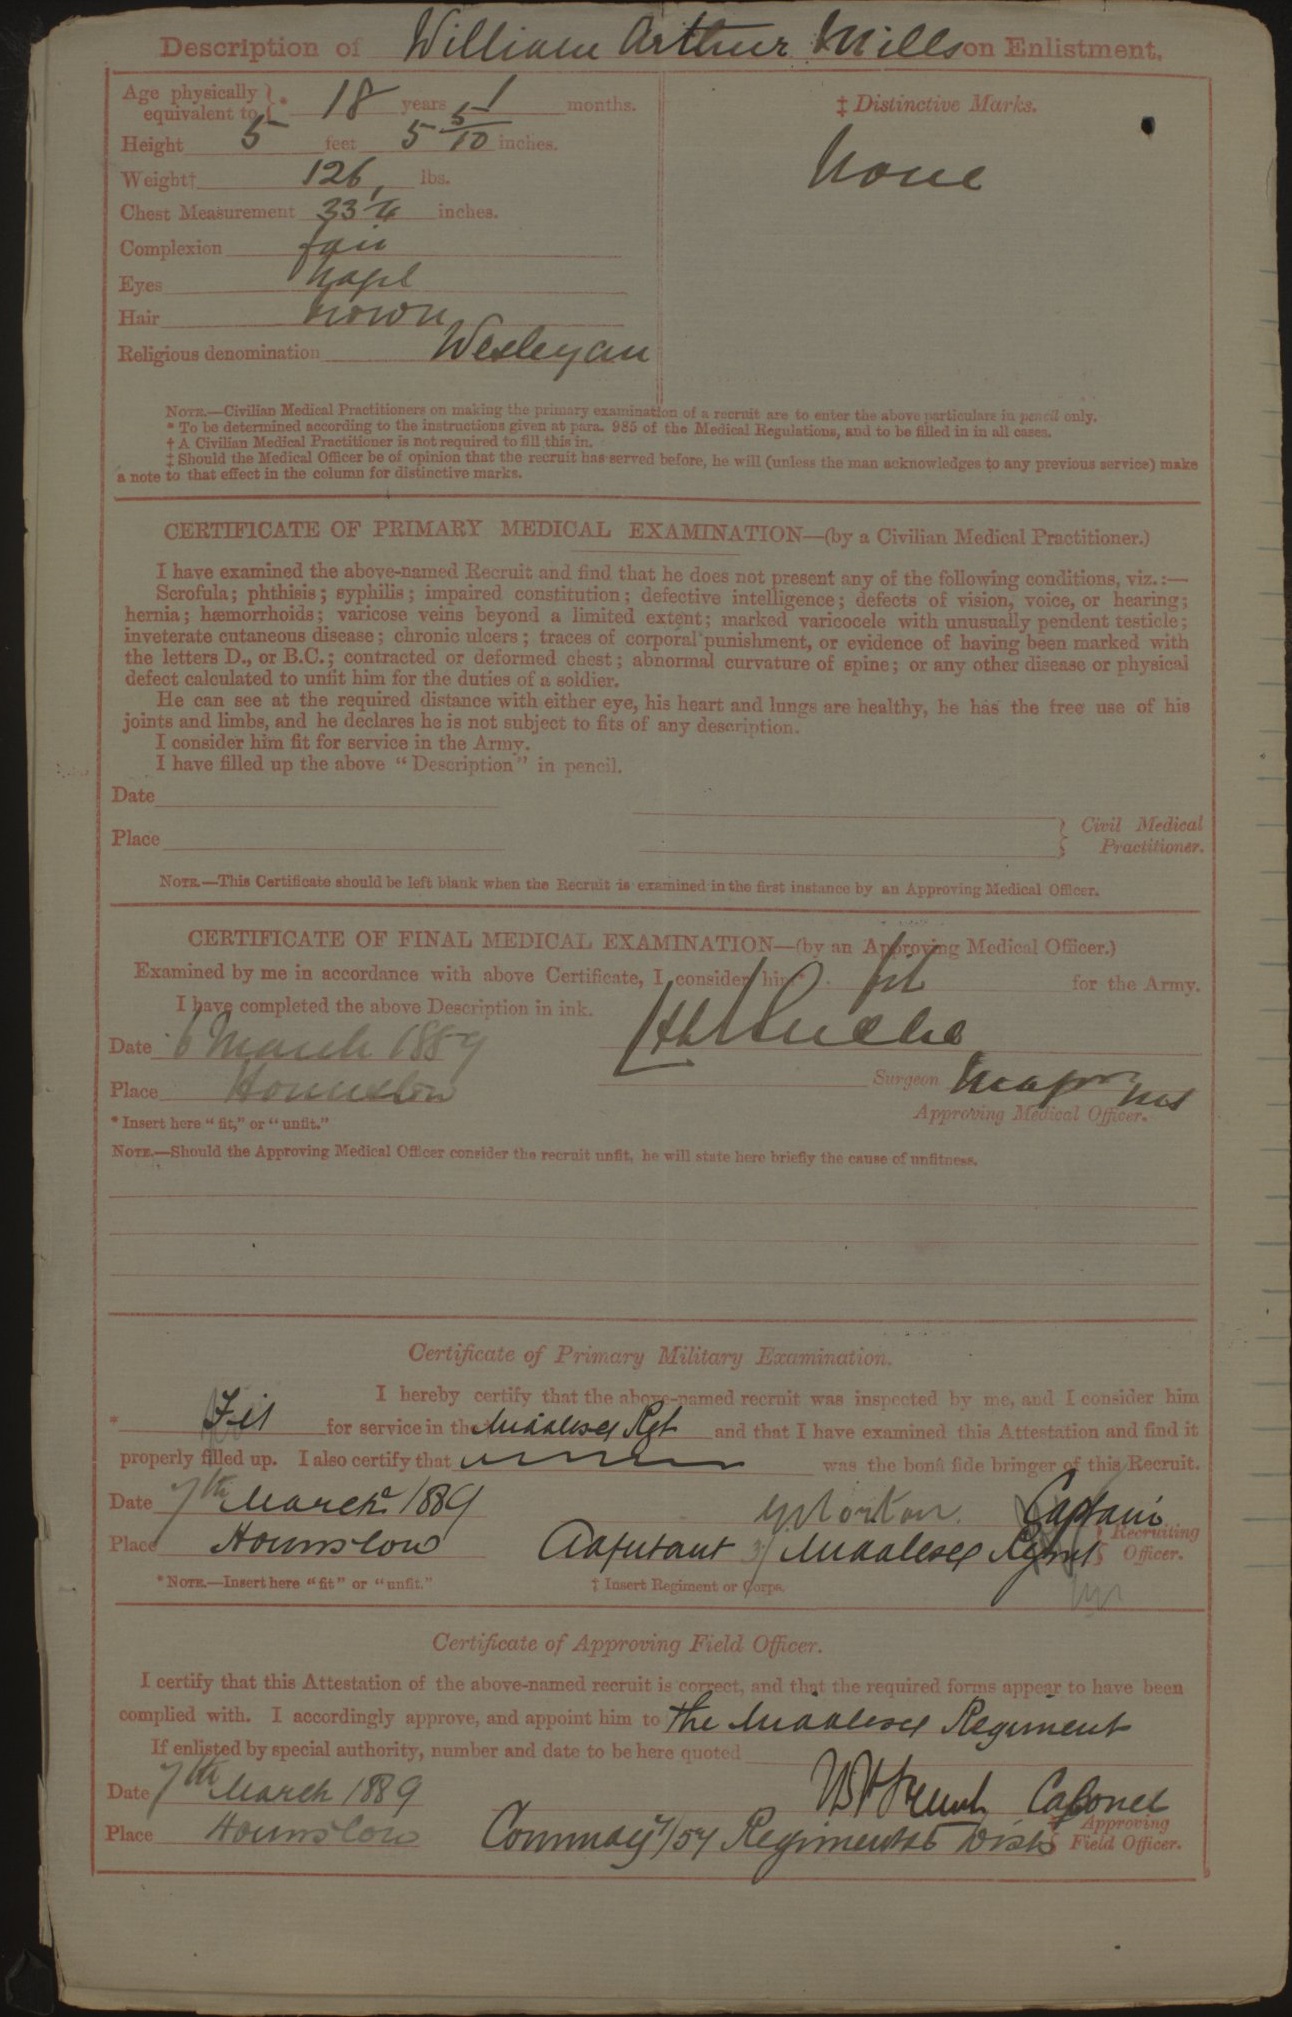 Description of William Arthur Mills on Enlistment.
Age physically equivalent to * 18 years 1 months.
Height 5 feet 5 5/10 inches.
Weight† 126 lbs.
Chest Measurement 33 1/4 inches.
Complexion fair
Eyes hazel
Hair brown
Religious denomination Wesleyan
‡ Distinctive Marks.
None
NOTE.—Civilian Medical Practitioners on making the primary examination of a recruit are to enter the above particulars in pencil only.
* To be determined according to the instructions given at para. 985 of the Medical Regulations, and to be filled in in all cases.
† A Civilian Medical Practitioner is not required to fill this in.
‡ Should the Medical Officer be of opinion that the recruit has served before, he will (unless the man acknowledges to any previous service) make
a note to that effect in the column for distinctive marks.
CERTIFICATE OF PRIMARY MEDICAL EXAMINATION—(by a Civilian Medical Practitioner.)
I have examined the above-named Recruit and find that he does not present any of the following conditions, viz.:—
Scrofula; phthisis; syphilis; impaired constitution; defective intelligence; defects of vision, voice, or hearing;
hernia; hæmorrhoids; varicose veins beyond a limited extent; marked varicocele with unusually pendent testicle;
inveterate cutaneous disease; chronic ulcers; traces of corporal punishment, or evidence of having been marked with
the letters D., or B.C.; contracted or deformed chest; abnormal curvature of spine; or any other disease or physical
defect calculated to unfit him for the duties of a soldier.
He can see at the required distance with either eye, his heart and lungs are healthy, he has the free use of his
joints and limbs, and he declares he is not subject to fits of any description.
I consider him fit for service in the Army.
I have filled up the above "Description" in pencil.
Date
Place
Civil Medical
Practitioner.
NOTE.—This Certificate should be left blank when the Recruit is examined in the first instance by an Approving Medical Officer.
CERTIFICATE OF FINAL MEDICAL EXAMINATION—(by an Approving Medical Officer.)
Examined by me in accordance with above Certificate, I consider him* fit for the Army.
I have completed the above Description in ink.
Date 6 March 1889
Place Hounslow
Surgeon Major MS
Approving Medical Officer.
* Insert here "fit," or "unfit."
NOTE.—Should the Approving Medical Officer consider the recruit unfit, he will state here briefly the cause of unfitness.
Certificate of Primary Military Examination.
I hereby certify that the above-named recruit was inspected by me, and I consider him
* Fit for service in the Middlesex Rgt and that I have examined this Attestation and find it
properly filled up. I also certify that was the bonâ fide bringer of this Recruit.
Date 7th March 1889 Morton. Captain
Place Hounslow Adjutant 3/ Middlesex Regmt Recruiting Officer.
* NOTE.—Insert here "fit" or "unfit." ‡ Insert Regiment or Corps.
Certificate of Approving Field Officer.
I certify that this Attestation of the above-named recruit is correct, and that the required forms appear to have been
complied with. I accordingly approve, and appoint him to The Middlesex Regiment
If enlisted by special authority, number and date to be here quoted
Date 7th March 1889 Colonel
Place Hounslow Commdg 57 Regimental Dist
Approving
Field Officer.